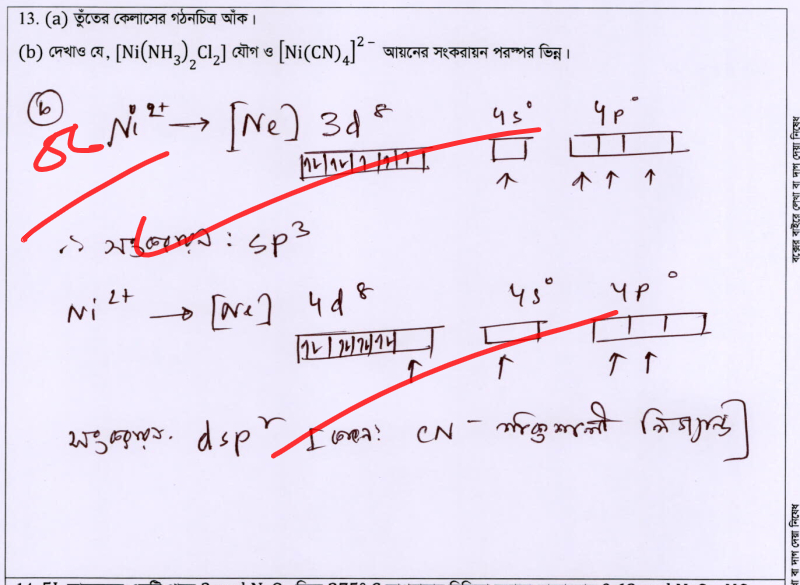 13. (a) তুঁতের কেলাসের গঠনচিত্র আঁক।
(b) দেখাও যে, [Ni(NH₃)₂Cl₂] যৌগ ও [Ni(CN)₄]²⁻ আয়নের সংকরায়ন পরস্পর ভিন্ন।
(b) Ni²⁺ → [Ne] 3d⁸ 4s⁰ 4p⁰
∴ সংকরায়ন : sp³
Ni²⁺ → [Ne] 4d⁸ 4s⁰ 4p⁰
সংকরায়ন. dsp² [কেন: CN⁻ শক্তিশালী লিগ্যান্ড]
বক্সের বাইরে লেখা বা দাগ দেয়া নিষেধ
বা দাগ দেয়া নিষেধ